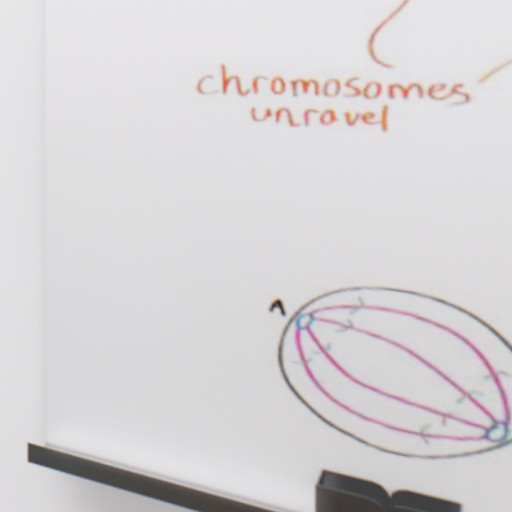 chromosomes
unravel
A